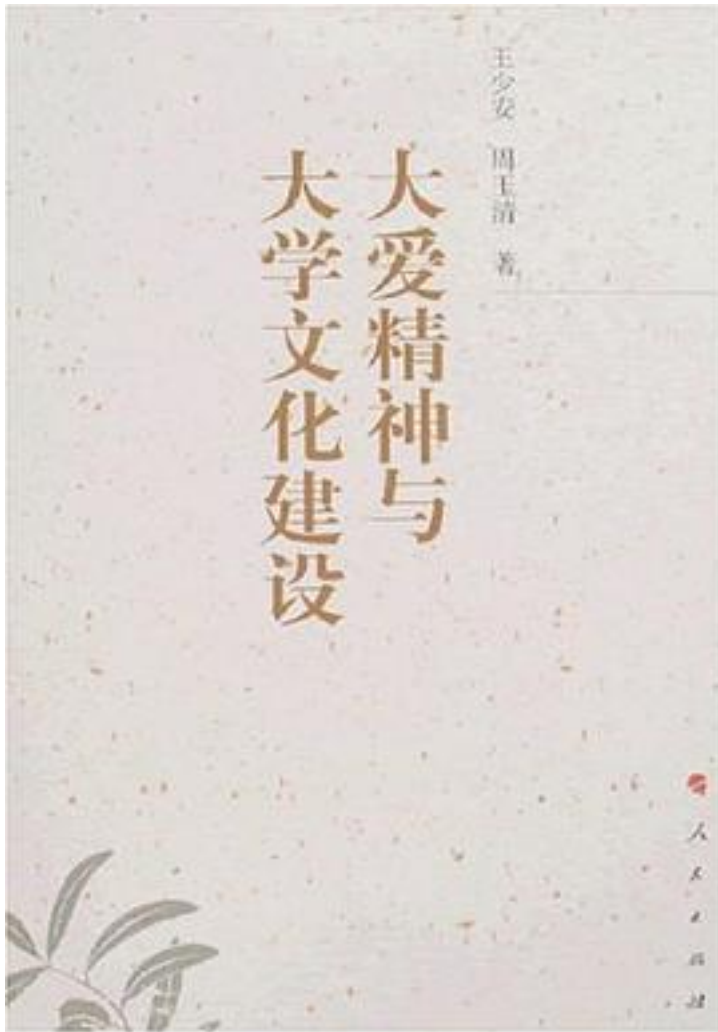 王少安 周玉清 著
大爱精神与
大学文化建设
人民出版社